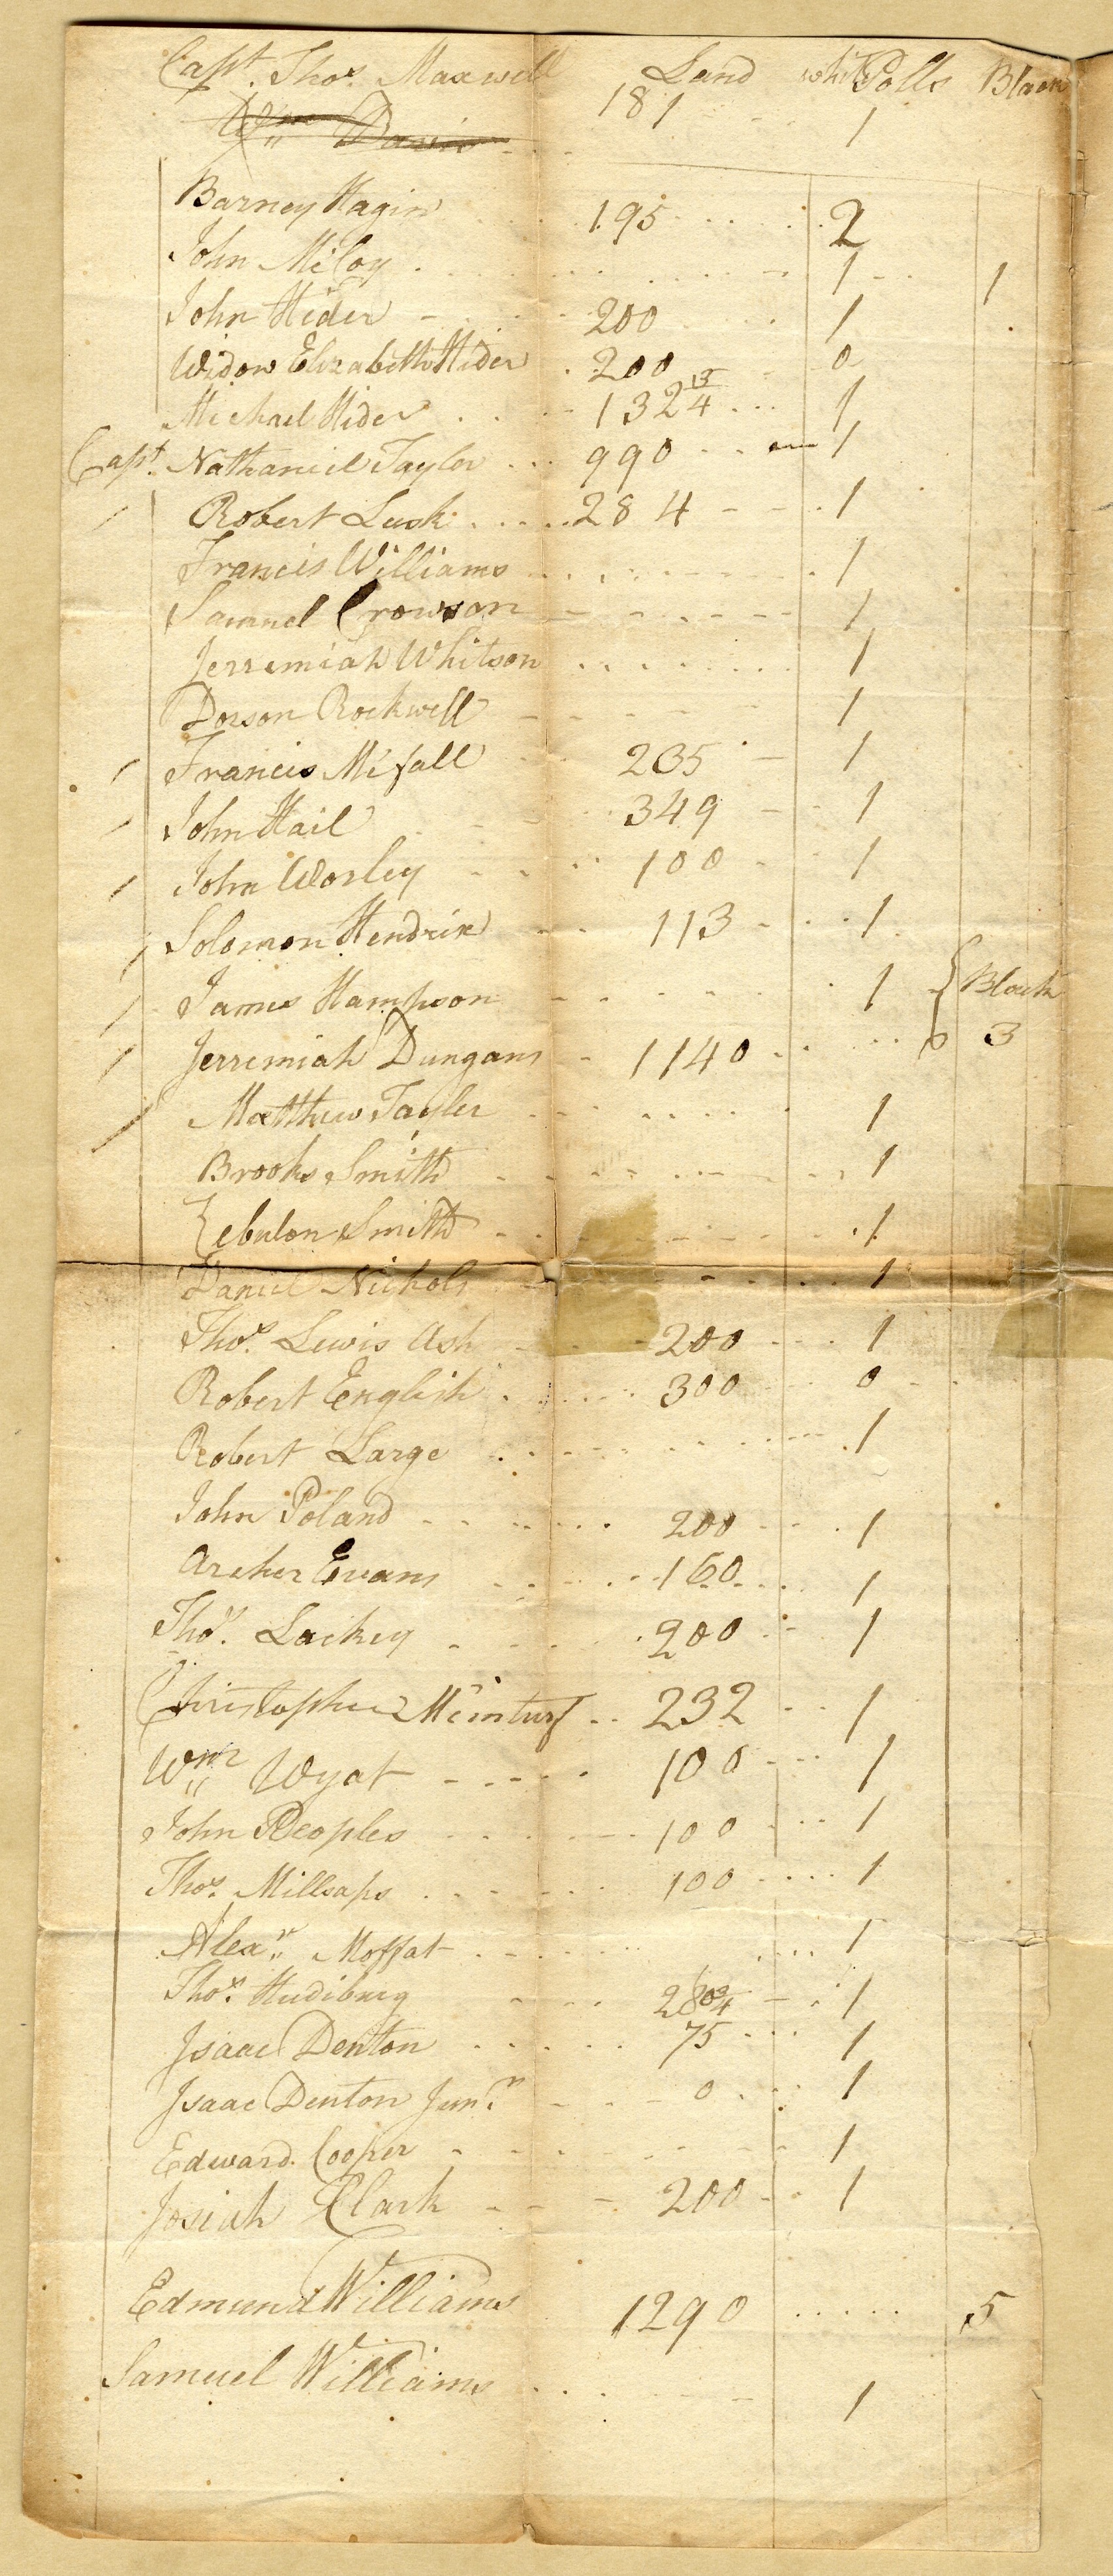 Capt. Thos. Maxwell Land white Polls Black
181 1
Wm Davis
Barney Hagin 195 2
John McCoy 1 1
John Hider 200 1
Widow Elizabeth Hider 200 0
Michael Hider 132 1
Capt. Nathaniel Tayler 990 1
Robert Lusk 284 1
Francis Williams 1
Samuel Crowson 1
Jerremiah Whitson 1
Dosson Rockwell 1
Francis Mcfall 235 1
John Hail 349 1
John Worley 100 1
Solomon Hendrix 113 1
James Hampson 1 Black
Jerremiah Dungans 1140 0 3
Matthew Tayler 1
Brooks Smith 1
Zebulon Smith 1
Daniel Nichols 1
Thos. Lewis Ash 200 1
Robert English 300 0
Robert Large 1
John Poland 200 1
Archer Evans 160 1
Thos. Lackey 200 1
Christopher Mcinturf 232 1
Wm Wyat 100 1
John Peoples 100 1
Thos. Millsaps 100 1
Alexr. Moffat 1
Thos. Hudiburg 1
Isaac Denton 75 1
Isaac Denton Junr. 0 1
Edward Cooper 1
Josiah Clark 200 1
Edmund Williams 1290 5
Samuel Williams 1